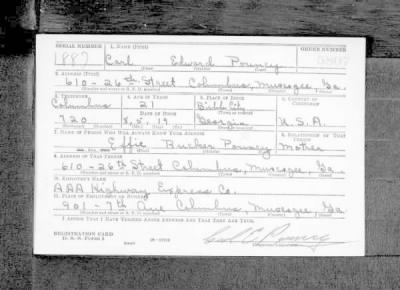 SERIAL NUMBER 1. NAME (Print) ORDER NUMBER
1887 Carl Edward Pouncy
2. ADDRESS (Print)
610-26th Street Columbus, Muscogee Ga.
3. TELEPHONE 4. AGE IN YEARS 5. PLACE OF BIRTH 6. COUNTRY OF CITIZENSHIP
Columbus 21 Bibb City
DATE OF BIRTH
720 Georgia U.S.A.
7. NAME OF PERSON WHO WILL ALWAYS KNOW YOUR ADDRESS 8. RELATIONSHIP OF THAT PERSON
Effie Pouncy Mother
9. ADDRESS OF THAT PERSON
610-26th Street Columbus, Muscogee, Ga.
10. EMPLOYER'S NAME
AAA Highway Express Co.
11. PLACE OF EMPLOYMENT OR BUSINESS
901-7th Ave Columbus, Muscogee, Ga
I AFFIRM THAT I HAVE VERIFIED ABOVE ANSWERS AND THAT THEY ARE TRUE.
REGISTRATION CARD
D. S. S. FORM 1
Carl E. Pouncy